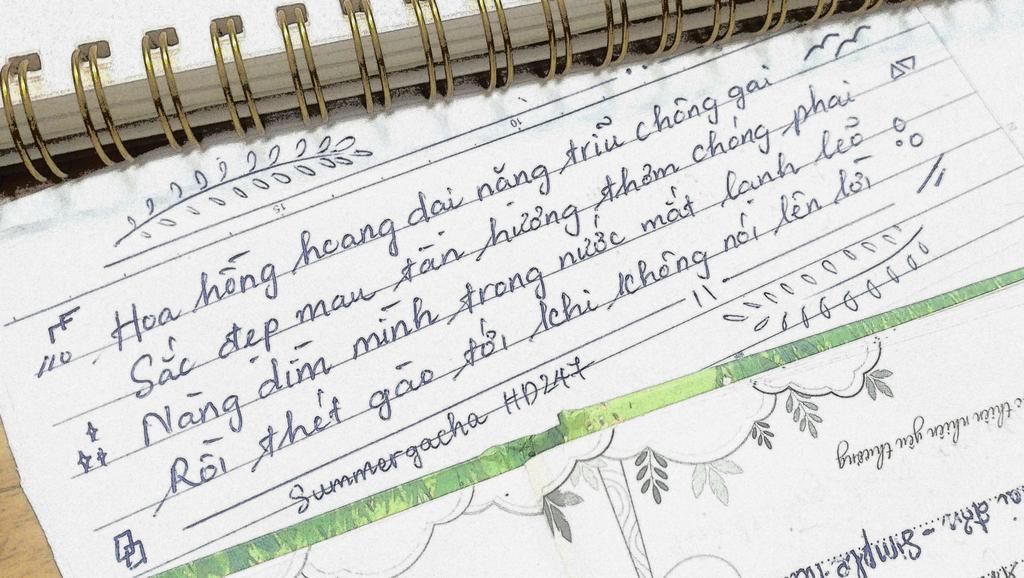 Hoa hồng hoang dại nặng trĩu chông gai
Sắc đẹp mau tàn hương thơm chóng phai
Nàng dìm mình trong nước mắt lạnh lẽo
Rồi thét gào tới khi không nói lên lời
Summergacha HD247
thiên nhiên yêu thương
đơn - Simple